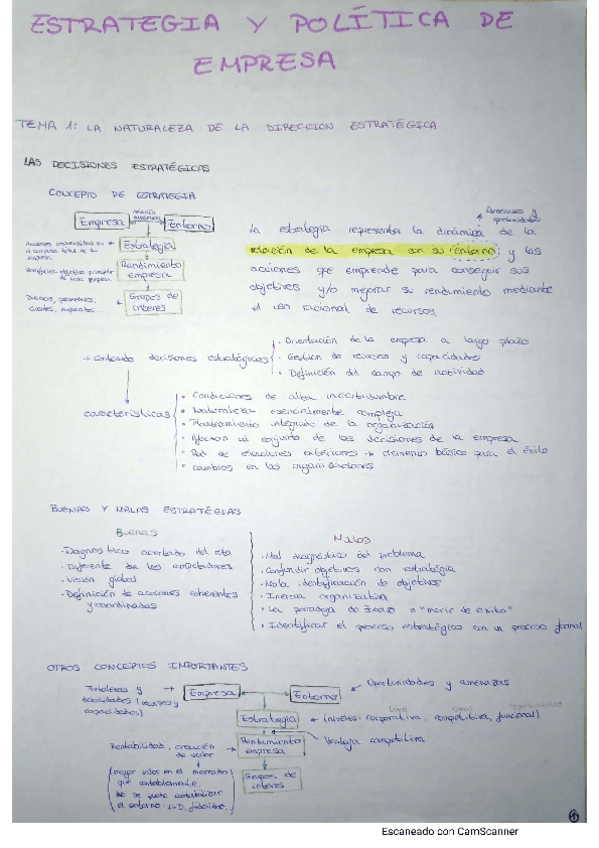 ESTRATEGIA Y POLÍTICA DE
EMPRESA
TEMA 1: LA NATURALEZA DE LA DIRECCION ESTRATÉGICA
LAS DECISIONES ESTRATÉGICAS
CONCEPTO DE ESTRATEGIA
Empresa
Entorno
Estrategia
Rendimiento
empresa
Grupos de
interes
Amenazas y
oportunidades
La estrategia representa la dinámica de la
relación de la empresa con su entorno y las
acciones que emprende para conseguir sus
objetivos y/o mejorar su rendimiento mediante
el uso racional de recursos.
decisiones estratégicas
• Orientación de la empresa a largo plazo
• Gestion de recursos y capacidades
• Definición del campo de actividad
características
• Condiciones de alta incertidumbre
• Naturaleza esencialmente compleja
• Planteamiento integrado de la organización
• Afectan al conjunto de las decisiones de la empresa
• Red de relaciones exteriores → elemento básico para el éxito
• cambios en las organizaciones
BUENAS Y MALAS ESTRATEGIAS
Buenas
- Diagnostico acertado del reto
- Diferente de los competidores
- Vision global
- Definición de acciones coherentes
y coordinadas
Malas
• Mal diagnóstico del problema
• Confundir objetivos con estratégia
• Mala identificación de objetivos
• Inercia organizativa
• La paradoja de Ícaro o "morir de éxito"
• Identificar el proceso estratégico con un proceso formal
OTROS CONCEPTOS IMPORTANTES
Fortalezas y
debilidades (recursos y
capacidades)
Empresa
Entorno
Oportunidades y amenazas
Estrategia
(niveles: corporativa, competitiva, funcional)
Rentabilidad, creación
de valor
Rendimiento
empresa
Ventaja competitiva
Grupos de
interes
(mayor valor en el mercado
que contablemente.
No se puede contabilizar
1
Escaneado con CamScanner